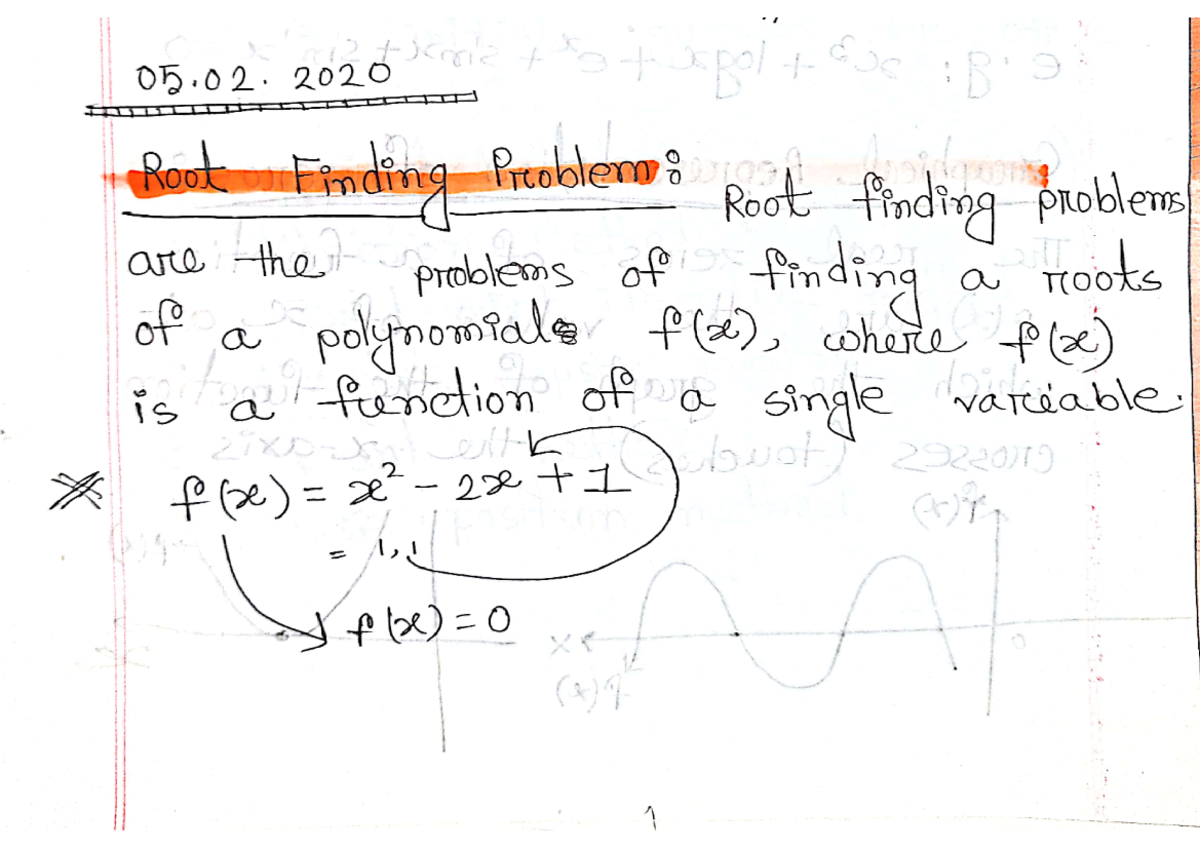 05.02. 2020
Root Finding Problem :
Root finding problems
are the problems of finding a roots
of a polynomial f(x), where f(x)
is a function of a single variable.
f(x) = x² - 2x + 1
= 1, 1
f(x) = 0
1